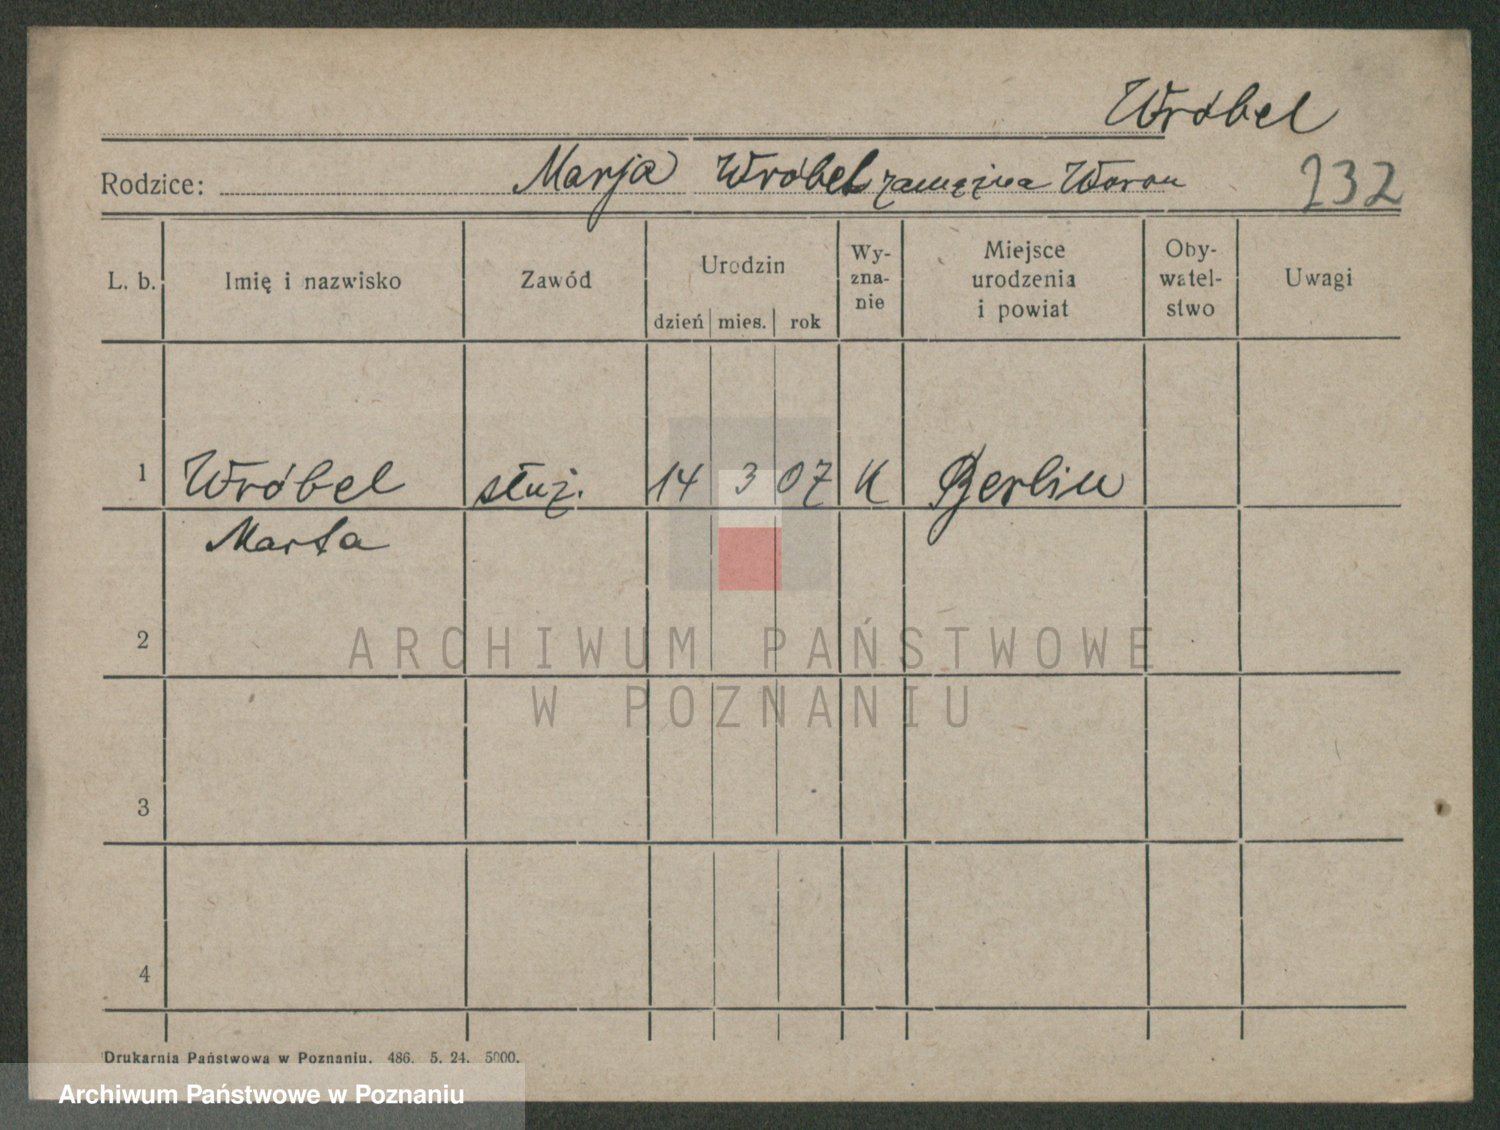 Wróbel
Rodzice: Marja Wróbel zamężna Woron 232
L. b. Imię i nazwisko Zawód Urodzin dzień mies. rok Wy-zna-nie Miejsce urodzenia i powiat Oby-watel-stwo Uwagi
1 Wróbel służ. 14 3 07 K Berlin
Marta
2
ARCHIWUM PAŃSTWOWE
W POZNANIU
3
4
Drukarnia Państwowa w Poznaniu. 486. 5. 24. 5000.
Archiwum Państwowe w Poznaniu